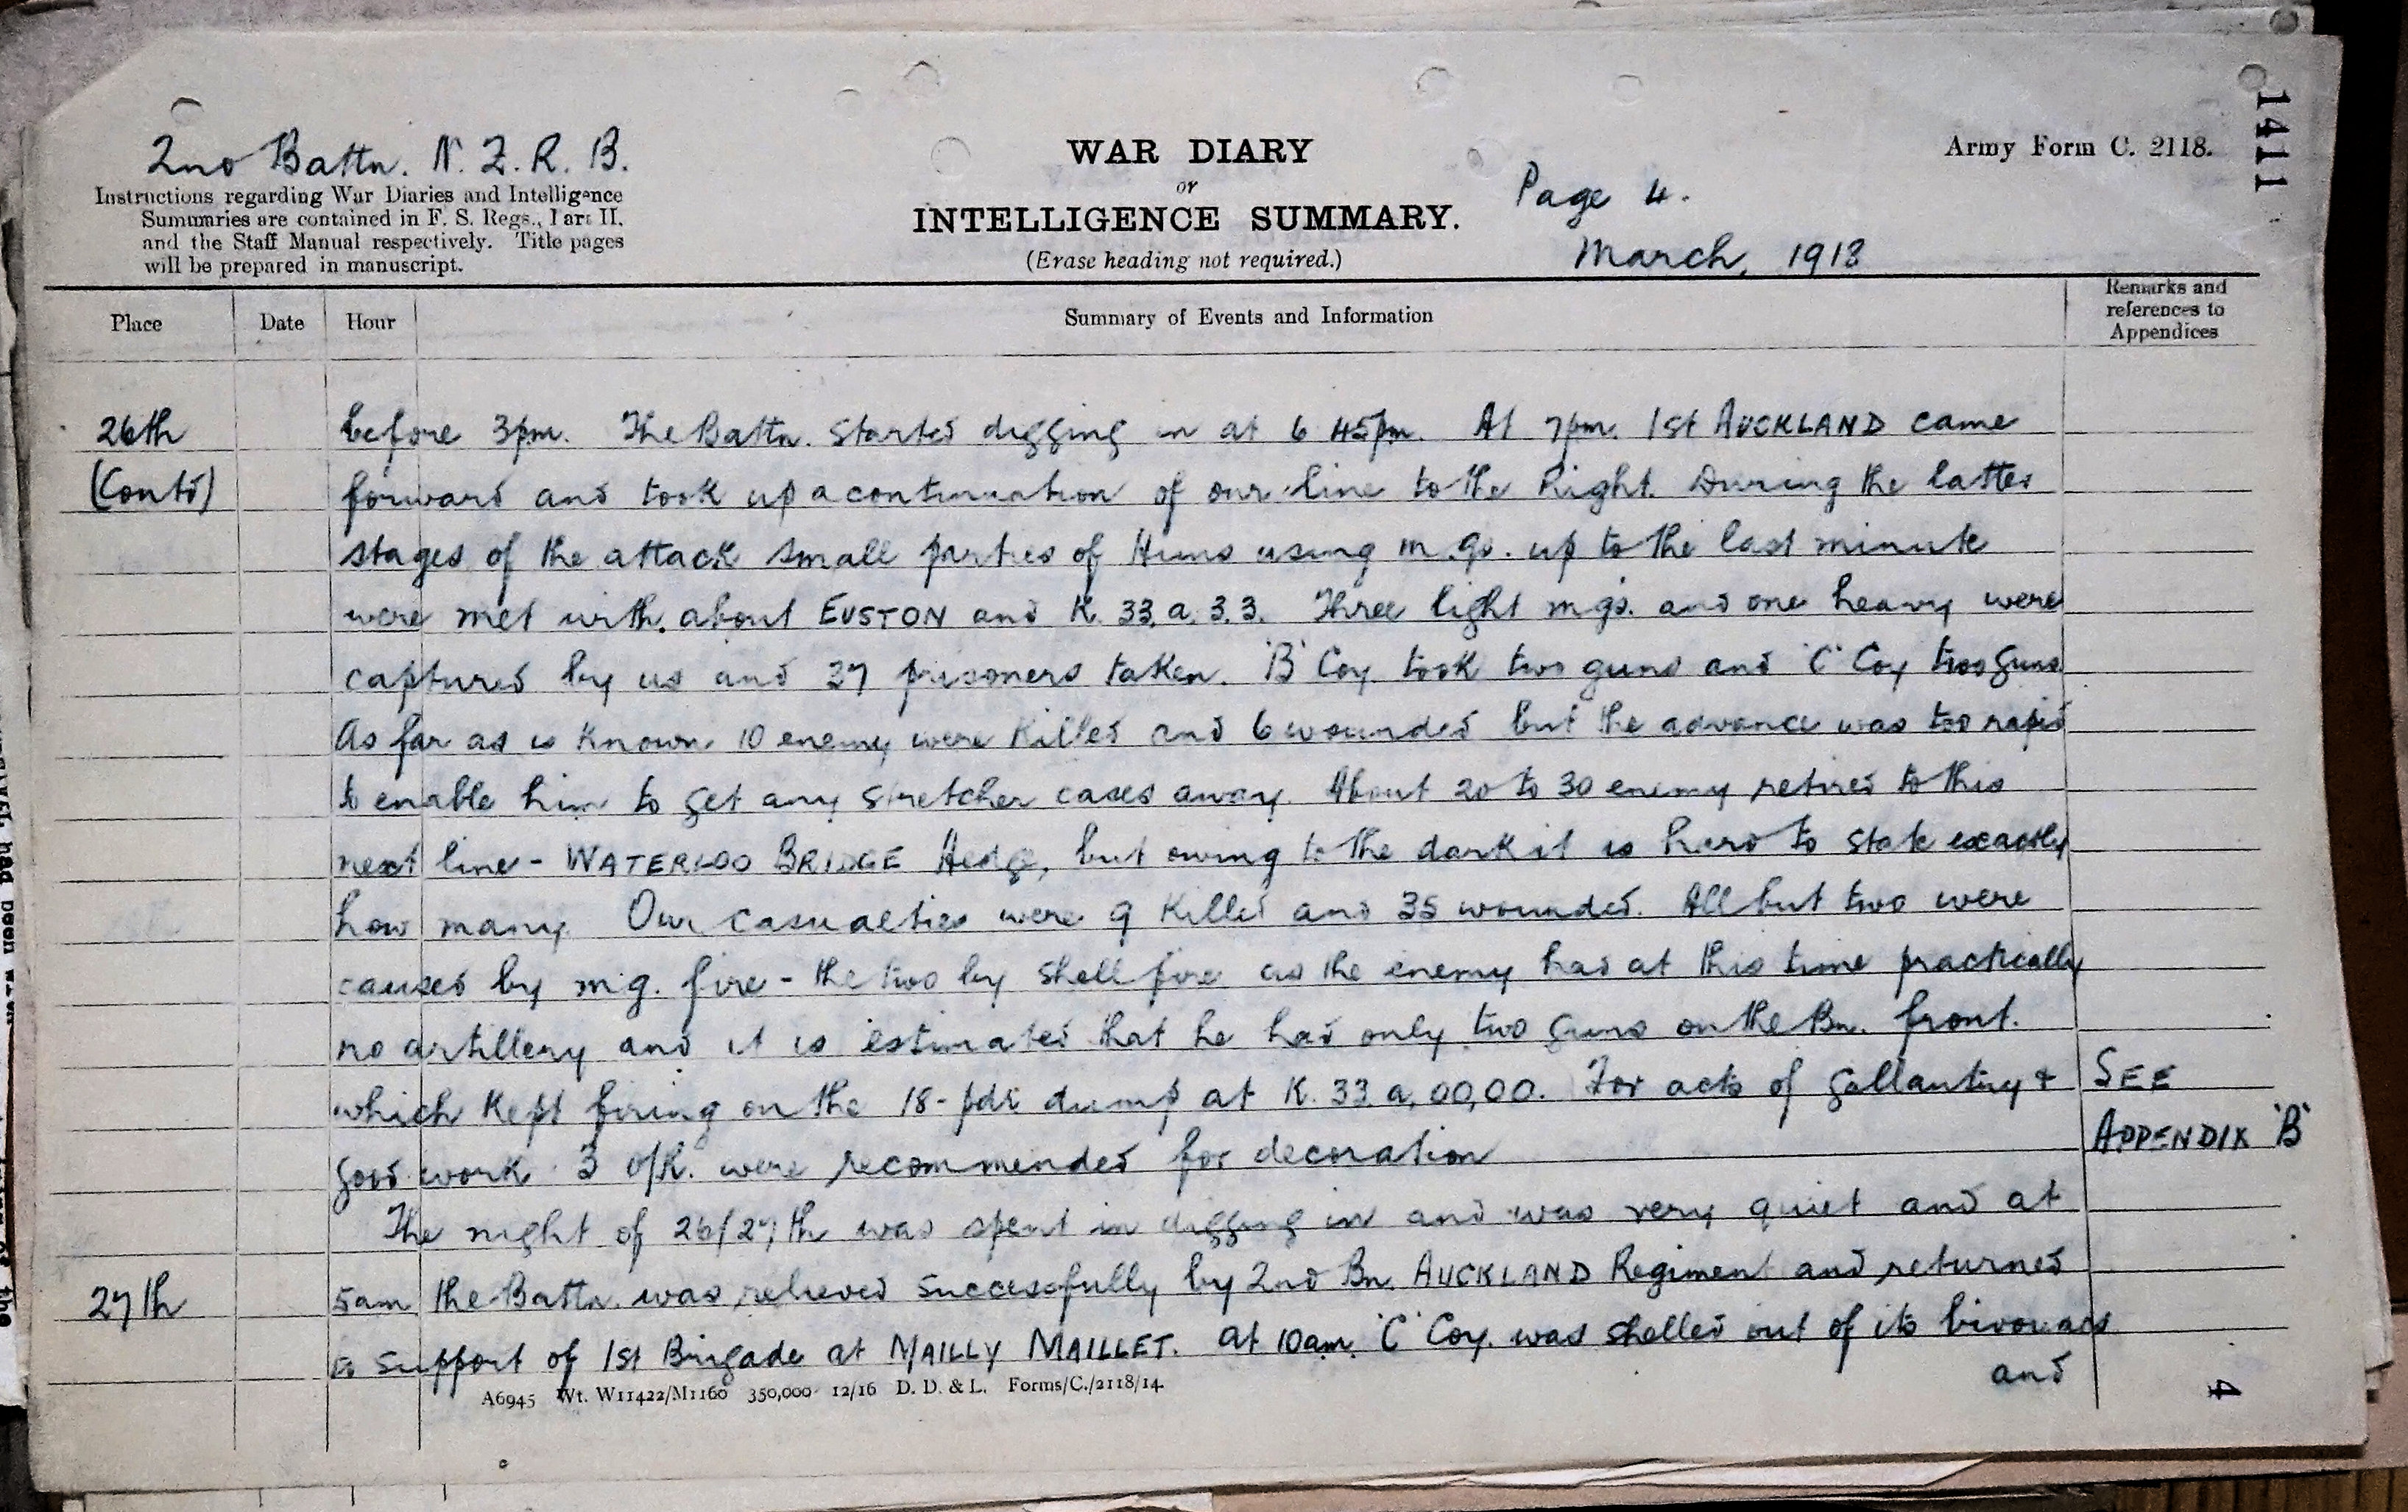 1411
2nd Battn. N. Z. R. B.
Instructions regarding War Diaries and Intelligence
Summaries are contained in F. S. Regs., Part II.
and the Staff Manual respectively. Title pages
will be prepared in manuscript.
WAR DIARY
or
INTELLIGENCE SUMMARY.
(Erase heading not required.)
Page 4.
March, 1918
Army Form C. 2118.
Place
Date
Hour
Summary of Events and Information
Remarks and
references to
Appendices
26th
(Contd)
before 3pm. The Battn. started digging in at 6 45pm. At 7pm. 1st AUCKLAND came
forward and took up a continuation of our line to the Right. During the latter
stages of the attack small parties of Huns using m.gs. up to the last minute
were met with about EUSTON and K. 33. a. 3. 3. Three light mgs. and one heavy were
captured by us and 37 prisoners taken. 'B' Coy. took two guns and 'C' Coy two guns
As far as is known 10 enemy were killed and 6 wounded but the advance was too rapid
to enable him to get any stretcher cases away. About 20 to 30 enemy retired to this
next line - WATERLOO BRIDGE Hedge, but owing to the dark it is hard to state exactly
how many. Our casualties were 9 killed and 35 wounded. All but two were
caused by mg. fire - the two by shell fire as the enemy had at this time practically
no artillery and it is estimated that he had only two guns on the Bn. front.
which kept firing on the 18-pdr dump at K. 33. a, 00,00. For acts of gallantry &
good work 3 o/R. were recommended for decoration
SEE
APPENDIX 'B'
The night of 26/27th was spent in digging in and was very quiet and at
27th
5am the Battn. was relieved successfully by 2nd Bn. AUCKLAND Regiment and returned
to support of 1st Brigade at MAILLY MAILLET. At 10am. 'C' Coy. was shelled out of its bivouacs
and
A6945 Wt. W11422/M1160 350,000 12/16 D. D. & L. Forms/C./2118/14.
4